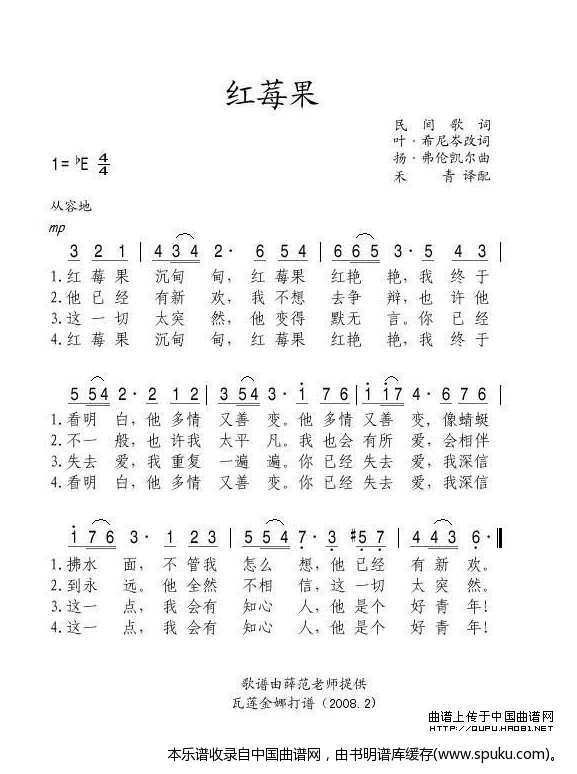 红莓果
民间歌词
叶·希尼岑改词
1=♭E 4/4
扬·弗伦凯尔曲
禾青译配
从容地
mp
3 2 1 | 4 3 4 2· 6 5 4 | 6 6 5 3· 5 4 3 |
1.红莓果 沉甸甸，红莓果 红艳艳，我终于
2.他已经 有新欢，我不想 去争辩，也许他
3.这一切 太突然，他变得 默无言。你已经
4.红莓果 沉甸甸，红莓果 红艳艳，我终于
5 5 4 2·2 1 2 | 3 5 4 3· i 7 6 | i i 7 4· 7 6 5 |
1.看明白，他多情 又善变。他多情 又善变，像蜻蜓
2.不一般，也许我 太平凡。我也会 有所爱，会相伴
3.失去爱，我重复 一遍遍。你已经 失去爱，我深信
4.看明白，他多情 又善变。你已经 失去爱，我深信
i 7 6 3· 1 2 3 | 5 5 4 7· 3 #5 7 | 4 4 3 6·
1.拂水面，不管我 怎么想，他已经 有新欢。
2.到永远。他全然 不相信，这一切 太突然。
3.这一点，我会有 知心人，他是个 好青年！
4.这一点，我会有 知心人，他是个 好青年！
歌谱由薛范老师提供
瓦莲金娜打谱（2008.2）
曲谱上传于中国曲谱网
HTTP://QUPU.HAO81.NET
本乐谱收录自中国曲谱网，由书明谱库缓存(www.spuku.com)。